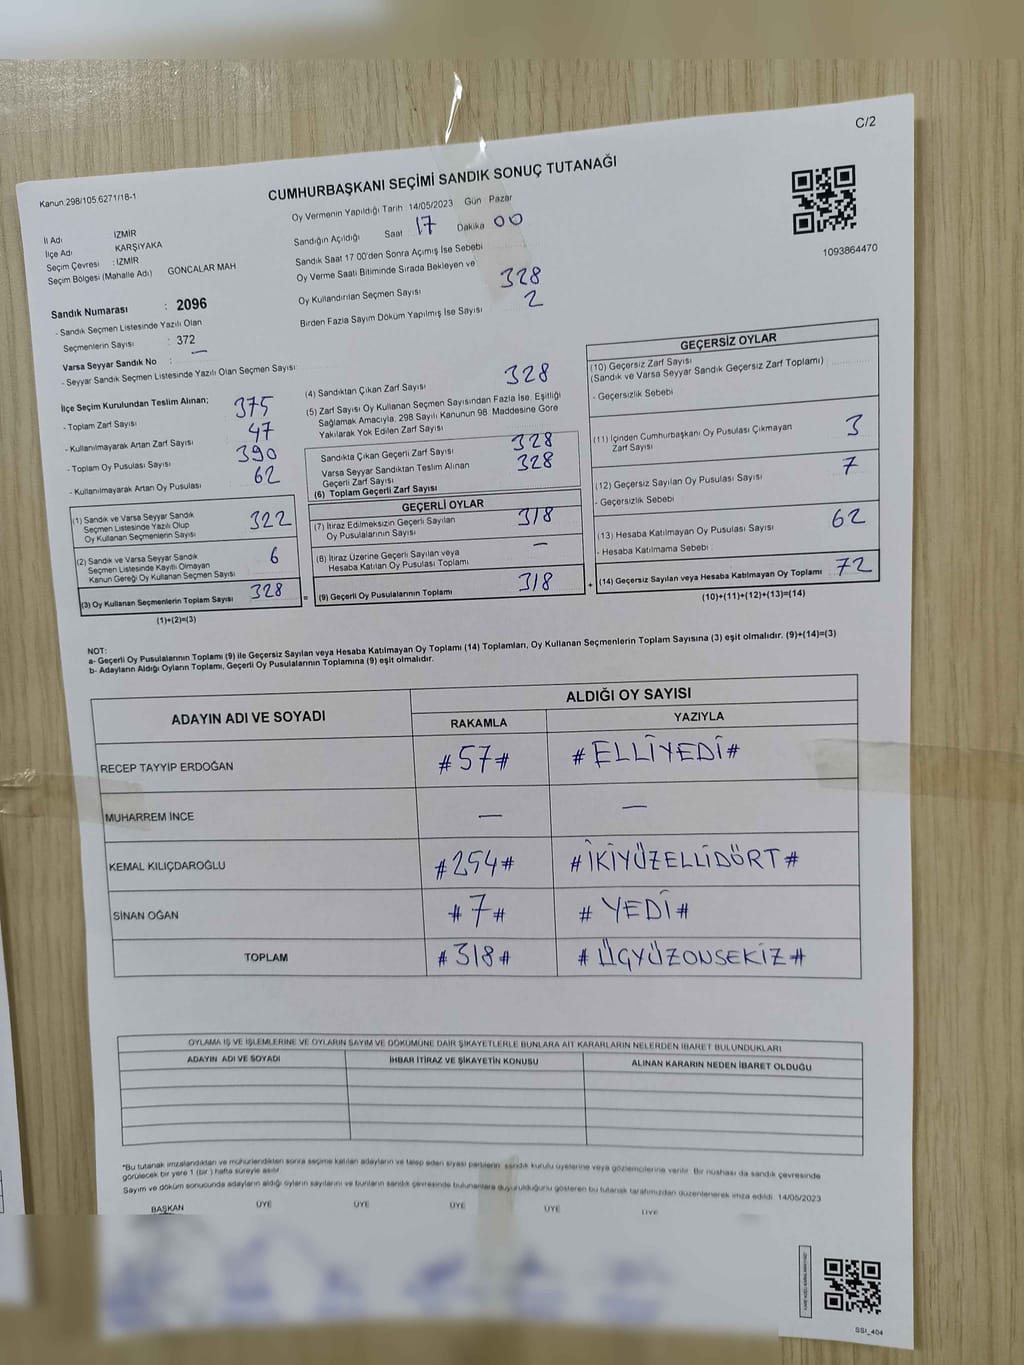 C/2
Kanun:298/105.6271/18-1
CUMHURBAŞKANI SEÇİMİ SANDIK SONUÇ TUTANAĞI
1093864470
İl Adı İZMİR
İlçe Adı KARŞIYAKA
Seçim Çevresi : İZMİR
Seçim Bölgesi (Mahalle Adı) GONCALAR MAH
Sandık Numarası : 2096
- Sandık Seçmen Listesinde Yazılı Olan
Seçmenlerin Sayısı : 372
Varsa Seyyar Sandık No : —
- Seyyar Sandık Seçmen Listesinde Yazılı Olan Seçmen Sayısı:
Oy Vermenin Yapıldığı Tarih 14/05/2023 Gün Pazar
Sandığın Açıldığı Saat 17 Dakika 00
Sandık Saat 17 00'den Sonra Açımış İse Sebebi
Oy Verme Saati Bitiminde Sırada Bekleyen ve
Oy Kullandırılan Seçmen Sayısı 328
Birden Fazla Sayım Döküm Yapılmış İse Sayısı 2
İlçe Seçim Kurulundan Teslim Alınan;
- Toplam Zarf Sayısı 375
- Kullanılmayarak Artan Zarf Sayısı 47
- Toplam Oy Pusulası Sayısı 390
- Kullanılmayarak Artan Oy Pusulası 62
(1) Sandık ve Varsa Seyyar Sandık
Seçmen Listesinde Yazılı Olup
Oy Kullanan Seçmenlerin Sayısı 322
(2) Sandık ve Varsa Seyyar Sandık
Seçmen Listesinde Kayıtlı Olmayan
Kanun Gereği Oy Kullanan Seçmen Sayısı 6
(3) Oy Kullanan Seçmenlerin Toplam Sayısı 328
(1)+(2)=(3)
(4) Sandıktan Çıkan Zarf Sayısı 328
(5) Zarf Sayısı Oy Kullanan Seçmen Sayısından Fazla İse, Eşitliği
Sağlamak Amacıyla, 298 Sayılı Kanunun 98. Maddesine Göre
Yakılarak Yok Edilen Zarf Sayısı
Sandıkta Çıkan Geçerli Zarf Sayısı 328
Varsa Seyyar Sandıktan Teslim Alınan
Geçerli Zarf Sayısı 328
(6) Toplam Geçerli Zarf Sayısı
GEÇERLİ OYLAR
(7) İtiraz Edilmeksizin Geçerli Sayılan
Oy Pusulalarının Sayısı 318
(8) İtiraz Üzerine Geçerli Sayılan veya
Hesaba Katılan Oy Pusulası Toplamı —
= (9) Geçerli Oy Pusulalarının Toplamı 318
GEÇERSİZ OYLAR
(10) Geçersiz Zarf Sayısı
(Sandık ve Varsa Seyyar Sandık Geçersiz Zarf Toplamı)
- Geçersizlik Sebebi
(11) İçinden Cumhurbaşkanı Oy Pusulası Çıkmayan
Zarf Sayısı 3
(12) Geçersiz Sayılan Oy Pusulası Sayısı 7
- Geçersizlik Sebebi
(13) Hesaba Katılmayan Oy Pusulası Sayısı 62
- Hesaba Katılmama Sebebi
+ (14) Geçersiz Sayılan veya Hesaba Katılmayan Oy Toplamı 72
(10)+(11)+(12)+(13)=(14)
NOT:
a- Geçerli Oy Pusulalarının Toplamı (9) ile Geçersiz Sayılan veya Hesaba Katılmayan Oy Toplamı (14) Toplamları, Oy Kullanan Seçmenlerin Toplam Sayısına (3) eşit olmalıdır. (9)+(14)=(3)
b- Adayların Aldığı Oyların Toplamı, Geçerli Oy Pusulalarının Toplamına (9) eşit olmalıdır.
ADAYIN ADI VE SOYADI ALDIĞI OY SAYISI
RAKAMLA YAZIYLA
RECEP TAYYİP ERDOĞAN #57# #ELLİYEDİ#
MUHARREM İNCE — —
KEMAL KILIÇDAROĞLU #254# #İKİYÜZELLİDÖRT#
SİNAN OĞAN #7# #YEDİ#
TOPLAM #318# #ÜÇYÜZONSEKİZ#
OYLAMA İŞ VE İŞLEMLERİNE VE OYLARIN SAYIM VE DÖKÜMÜNE DAİR ŞİKAYETLERLE BUNLARA AİT KARARLARIN NELERDEN İBARET BULUNDUKLARI
ADAYIN ADI VE SOYADI İHBAR İTİRAZ VE ŞİKAYETİN KONUSU ALINAN KARARIN NEDEN İBARET OLDUĞU
*Bu tutanak imzalandıktan ve mühürlendikten sonra seçime katılan adayların ve talep eden siyasi partilerin sandık kurulu üyelerine veya gözlemcilerine verilir. Bir nüshası da sandık çevresinde
görülecek bir yere 1 (bir ) hafta süreyle asılır.
Sayım ve döküm sonucunda adayların aldığı oyların sayılarını ve bunların sandık çevresinde bulunanlara duyurulduğunu gösteren bu tutanak tarafımızdan düzenlenerek imza edildi. 14/05/2023
BAŞKAN ÜYE ÜYE ÜYE ÜYE ÜYE
SSI_404